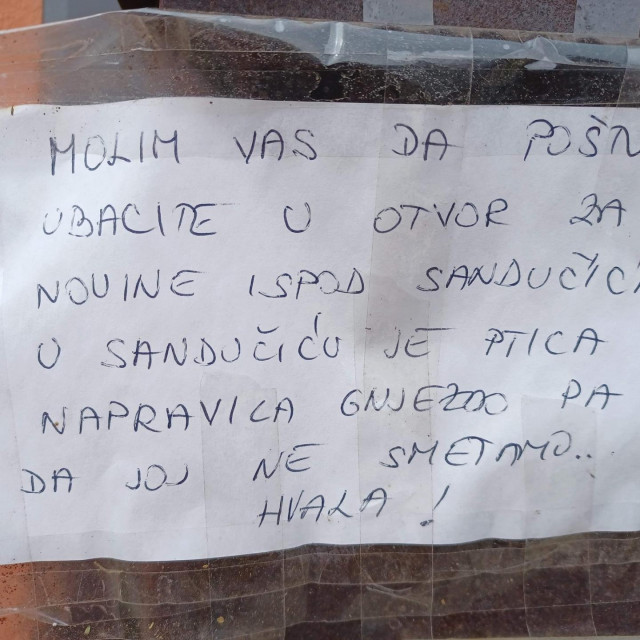 MOLIM VAS DA POŠT
UBACITE U OTVOR ZA
NOVINE ISPOD SANDUČIĆ
U SANDUČIĆU JE PTICA
NAPRAVILA GNJEZDO PA
DA JOJ NE SMETAMO...
HVALA!